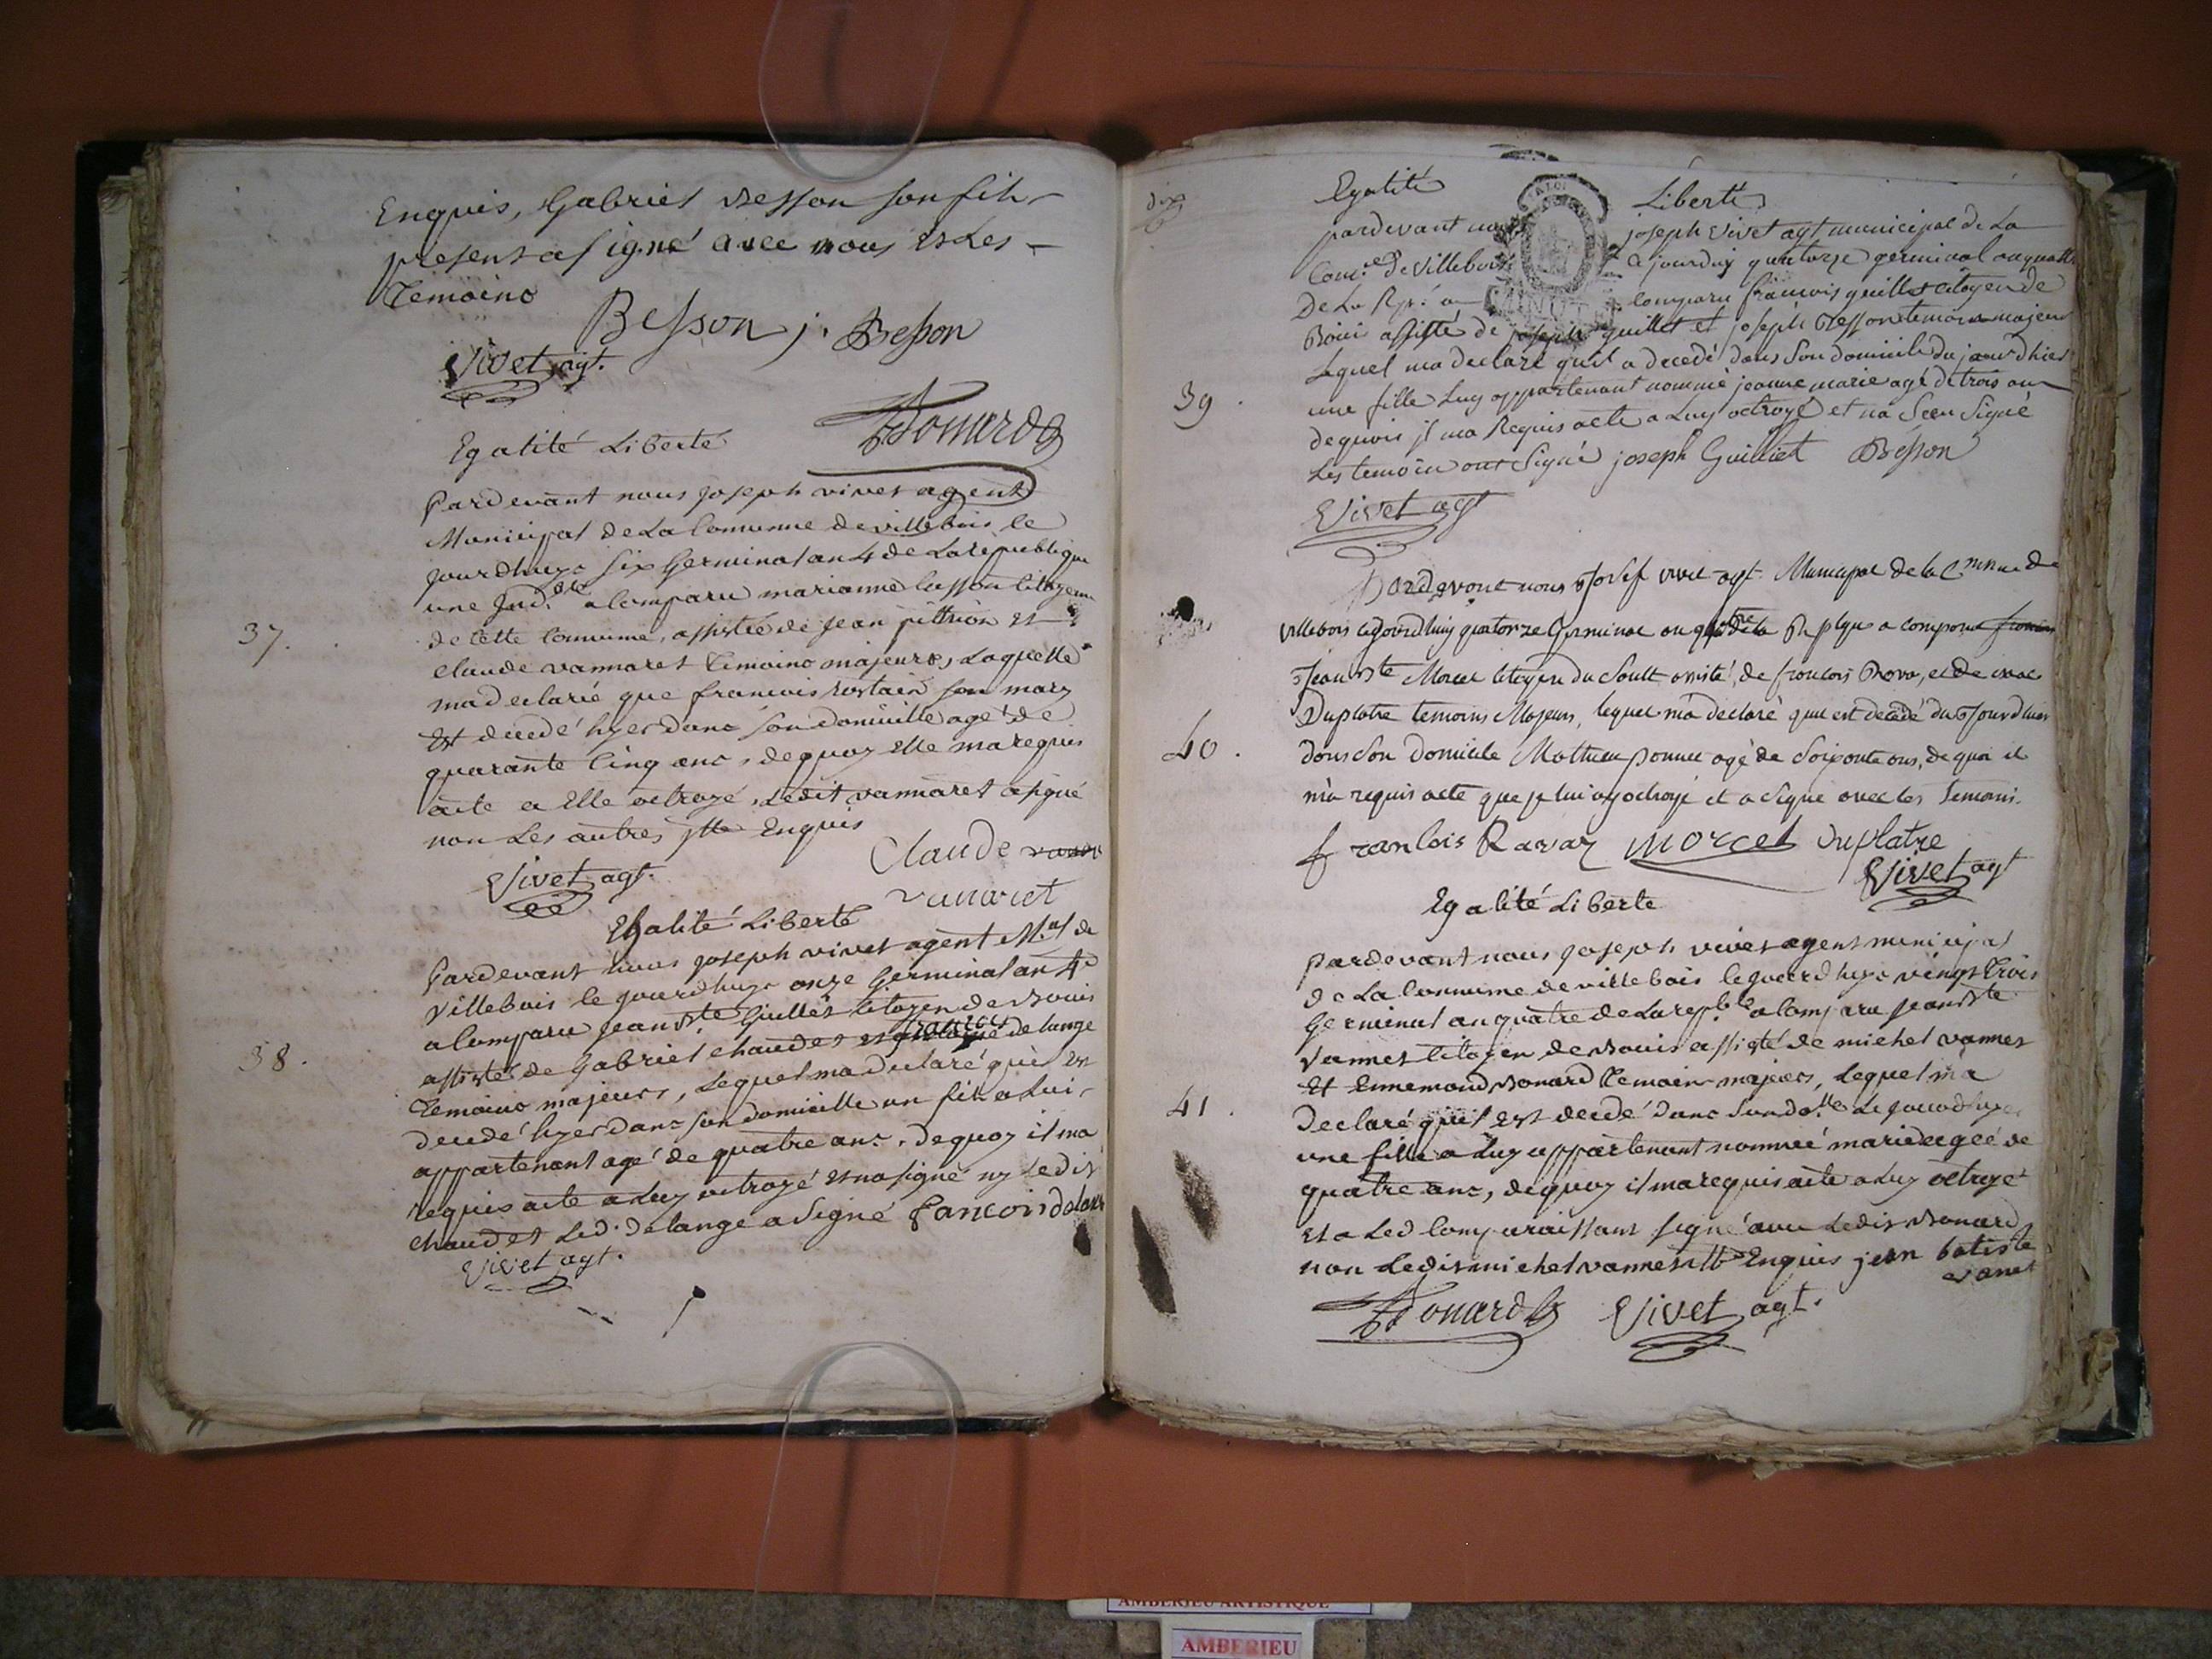 Enquis, Gabriel Besson son fils
present a signé avec nous et Les
Temoins
Besson j. Besson
Vivet agt.
Bonard
Egalité Liberté
Pardevant nous joseph vivet agent
Municipal de La Commune de villebois le
jourdhuy six Germinal an 4 de La republique
une Ind.ble a Comparu marianne Citoyenne
37.
de Cette Commune, assistée de jean pittion et
claude vannaret temoins majeurs, Laquelle
ma declaré que francois rostain son mary
Est decedé hyer dans son domicille agé de
quarante Cinq ans, dequoy Elle ma requis
acte a Elle octroyé, Ledit vannaret a signé
non Les autres Enquis
Claude
vanaret
Vivet agt.
Egalité Liberté
Pardevant nous joseph vivet agent M.al de
villebois le jourdhuy onze Germinal an 4e
a Comparu jean Bte Guillet Citoyen de Bouis
assisté de Gabriel chaudet et francois de lange
38.
temoins majeurs, Lequel ma declaré qu'il est
decedé hyer dans son domicille un fils a Lui
appartenant agé de quatre ans, dequoy il ma
requis acte a Luy octroyé et na signé ny Ledit
chaudet Led. delange a signé
Vivet agt.
Egalité Liberté
pardevant nous joseph vivet agt municipal de La
Com.e de villebois ce jourduy quatorze germinal an quatre
De La Rep. a comparu francois guillet citoyen de
Bouis assisté de joseph guillet et joseph Besson temoins majeur
Lequel ma declaré quil a decedé dans son domicile du jourdhier
39.
une fille Luy appartenant nommé jeanne marie agé de trois an
dequois jl ma Requis acte a Luy octroyé et na sceu signé
Les temoin ont signé joseph Guilliet Besson
Vivet agt
Pardevant nous Josef vivet agt Municipal de la Cmne de
villebois cejourdhuy quatorze Germinal an quatre de la Rep plque a comparu
Jean Bte Morcel Citoyen du Sault assisté, de francois Rava, et de
Duplatre temoins Majeurs, lequel m'a declaré que est decedé du Jourdhier
40.
dans son domicile Mathieu agé de soixante ans, dequoi il
m'a requis acte que je lui ay octroyé et a signé avec les temoins.
francois Ravaz morcel duplatre
Vivet agt
Egalité Liberté
pardevant nous joseph vivet agent municipal
de La Commune de villebois lejourdhuy vingt trois
Germinal an quatre de La repble a comparu jean Bte
vannet Citoyen de Bouis assisté de michel vannet
Et Ennemond Bonard temoins majeurs, lequel m'a
41.
declaré qu'il est decedé dans son do.lle Le jourdhuy
une fille a Luy appartenant nommé marie agée de
quatre ans, dequoy il ma requis acte a Luy octroyé
et a Led Comparaissant signé avec Ledit Bonard
non Ledit michel vannet Enquis jean batiste
vanet
Bonard Vivet agt.
AMBERIEU ARTISTIQUE
AMBERIEU